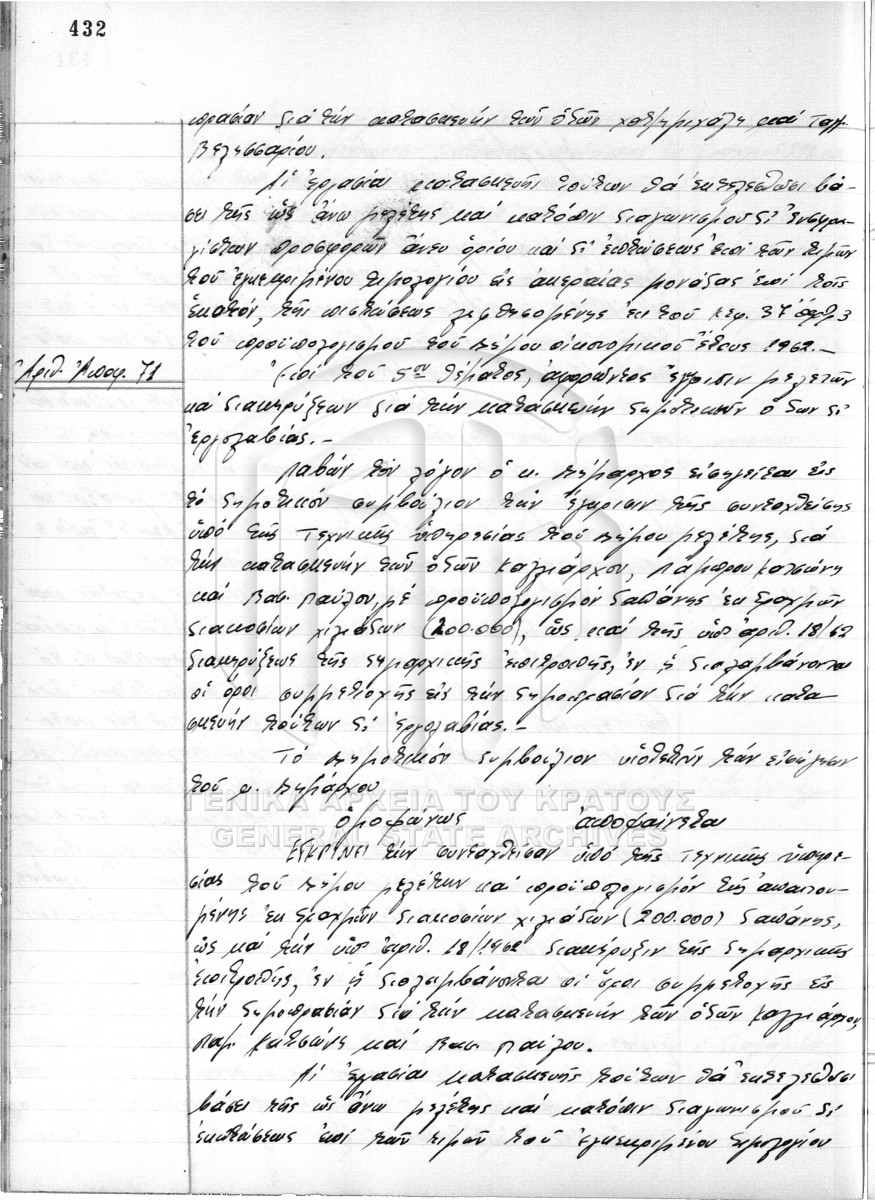 432
πρασίαν διά τήν κατασκευήν τῶν ὁδῶν χατζημιχάλη καί Ταγμ.
Βελισσαρίου.
Αἱ ἐργασίαι κατασκευῆς τούτων θά ἐκτελεσθῶσι βά-
σει τῆς ὡς ἄνω μελέτης καί κατόπιν διαγωνισμοῦ δι' ἐνσφρα-
γίστων προσφορῶν ἄνευ ὁρίου καί δι' ἐκπτώσεως ἐπί τῶν τιμῶν
τοῦ ἐγκεκριμένου τιμολογίου εἰς ἀκεραίας μονάδας ἐπί τοῖς
ἑκατόν, τῆς πιστώσεως ληφθησομένης ἐκ τοῦ κεφ. 37 ἄρθρ 3
τοῦ προϋπολογισμοῦ τοῦ Δήμου οἰκονομικοῦ ἔτους 1962.—
Ἀριθ. Ἀποφ. 71
Ἐπί τοῦ 5ου θέματος, ἀφορῶντος ἔγκρισιν μελετῶν
καί διακηρύξεων διά τήν κατασκευήν δημοτικῶν ὁδῶν δι'
ἐργολαβίας.—
Λαβών τόν λόγον ὁ κ. Δήμαρχος εἰσηγεῖται εἰς
τό δημοτικόν συμβούλιον τήν ἔγκρισιν τῆς συνταχθείσης
ὑπό τῆς Τεχνικῆς ὑπηρεσίας τοῦ Δήμου μελέτης, διά
τήν κατασκευήν τῶν ὁδῶν Καλλιάρχου, Λάμπρου Κατσώνη
καί Βασ. Παύλου, μέ προϋπολογισμόν δαπάνης ἐκ δραχμῶν
διακοσίων χιλιάδων (200.000), ὡς καί τῆς ὑπ' ἀριθ. 18/62
διακηρύξεως τῆς δημαρχικῆς ἐπιτροπῆς, ἐν ᾗ διαλαμβάνονται
οἱ ὅροι συμμετοχῆς εἰς τήν δημοπρασίαν διά τήν κατα
σκευήν τούτων δι' ἐργολαβίας.—
Τό Δημοτικόν Συμβούλιον υἱοθετοῦν τήν εἰσήγησιν
τοῦ κ. Δημάρχου
ΓΕΝΙΚΑ ΑΡΧΕΙΑ ΤΟΥ ΚΡΑΤΟΥΣ
ὁμοφώνως ἀποφαίνεται
GENERAL STATE ARCHIVES
ΕΓΚΡΙΝΕΙ τήν συνταχθεῖσαν ὑπό τῆς Τεχνικῆς ὑπηρε-
σίας τοῦ Δήμου μελέτην καί προϋπολογισμόν τῆς ἀπαιτου-
μένης ἐκ δραχμῶν διακοσίων χιλιάδων (200.000) δαπάνης,
ὡς καί τήν ὑπ' ἀριθ. 18/1962 διακήρυξιν τῆς δημαρχικῆς
ἐπιτροπῆς, ἐν ᾗ διαλαμβάνονται οἱ ὅροι συμμετοχῆς εἰς
τήν δημοπρασίαν διά τήν κατασκευήν τῶν ὁδῶν Καλλιάρχου,
Λαμ. Κατσώνη καί Βασ. Παύλου.
Αἱ ἐργασίαι κατασκευῆς τούτων θά ἐκτελεσθῶσι
βάσει τῆς ὡς ἄνω μελέτης καί κατόπιν διαγωνισμοῦ δι'
ἐκπτώσεως ἐπί τῶν τιμῶν τοῦ ἐγκεκριμένου τιμολογίου